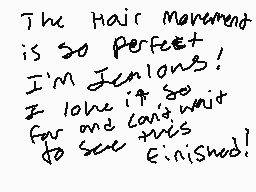 The Hair Movement
is so perfect
I'm Jealous!
I love it so
far and can't wait
to see this
Finished!